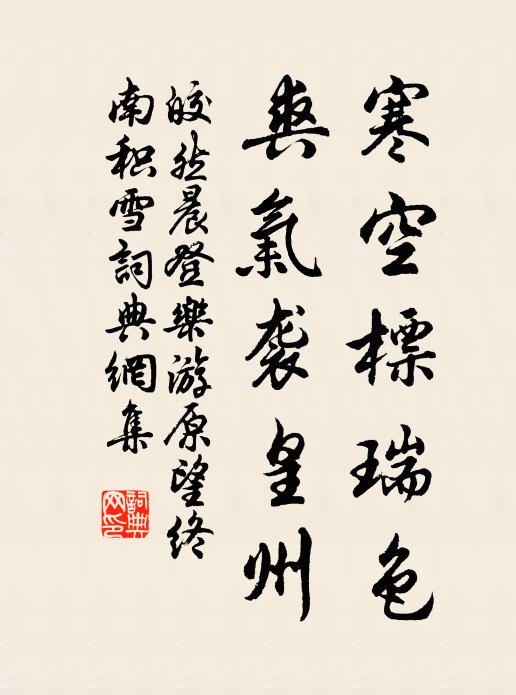 寒空標瑞色
爽氣袭皇州
皎然晨登樂游原望终
南积雪詞典網集
詞典网印